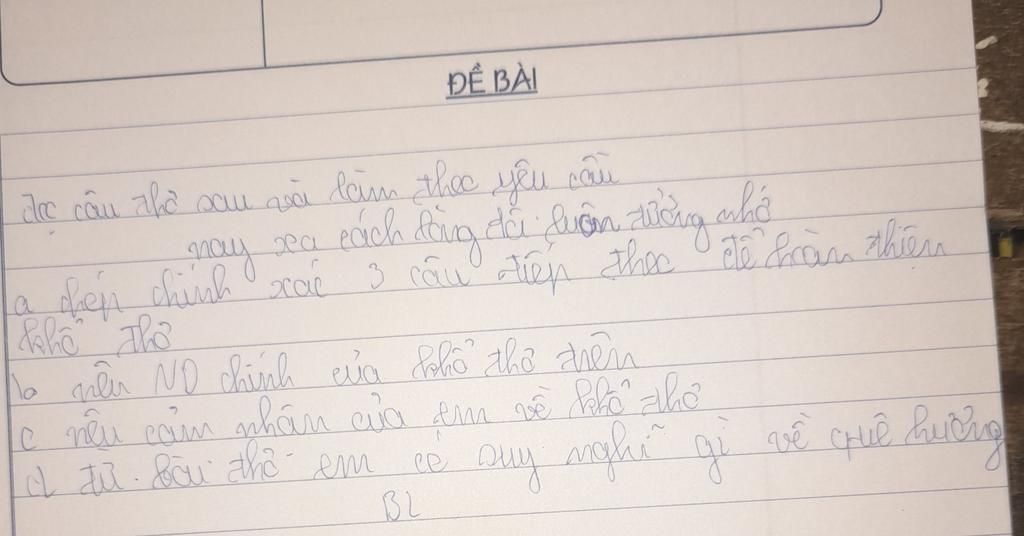 ĐỀ BÀI
đọc câu thơ sau và làm theo yêu cầu
nay xa cách lòng tôi luôn tưởng nhớ
a chép chính xác 3 câu tiếp theo để hoàn thiện
khổ thơ
b nêu ND chính của khổ thơ trên
c nêu cảm nhân của em về khổ thơ
d từ bài thơ em có suy nghĩ gì về quê hương
BL